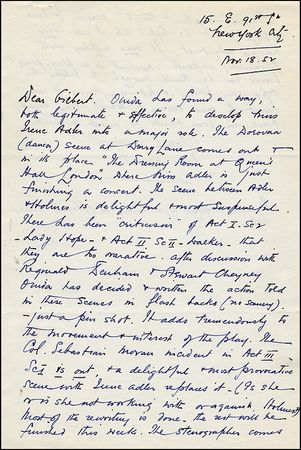 15. E. 91st St
New York City
Nov. 18. 52
Dear Gilbert. Ouida has found a way,
both legitimate & effective, to develop Miss
Irene Adler into a major role. The Dorovna
(dancer) scene at Drury Lane comes out &
in its place "The Dressing Room at Queen's
Hall London" where Miss Adler is just
finishing a concert. The scene between Adler
& Holmes is delightful & most suspenseful.
There has been "criticism" of Act I. Sc 2
- Lady Hope & Act II Sc II - Walker - that
they are too narrative. After discussion with
Reginald Denham & Stewart Cheyney
Ouida has decided & written the action told
in these scenes in flash backs (no scenery)
- just a pin shot. It adds tremendously to
the movement & interest of the play. The
Col. Sebastian Moran incident in Act III
Sc I is out, & a delightful & most provocative
scene with Irene Adler replaces it - (Is she
or is she not working with or against Holmes?)
Most of the rewriting is done - the rest will be
finished this week. The stenographer comes